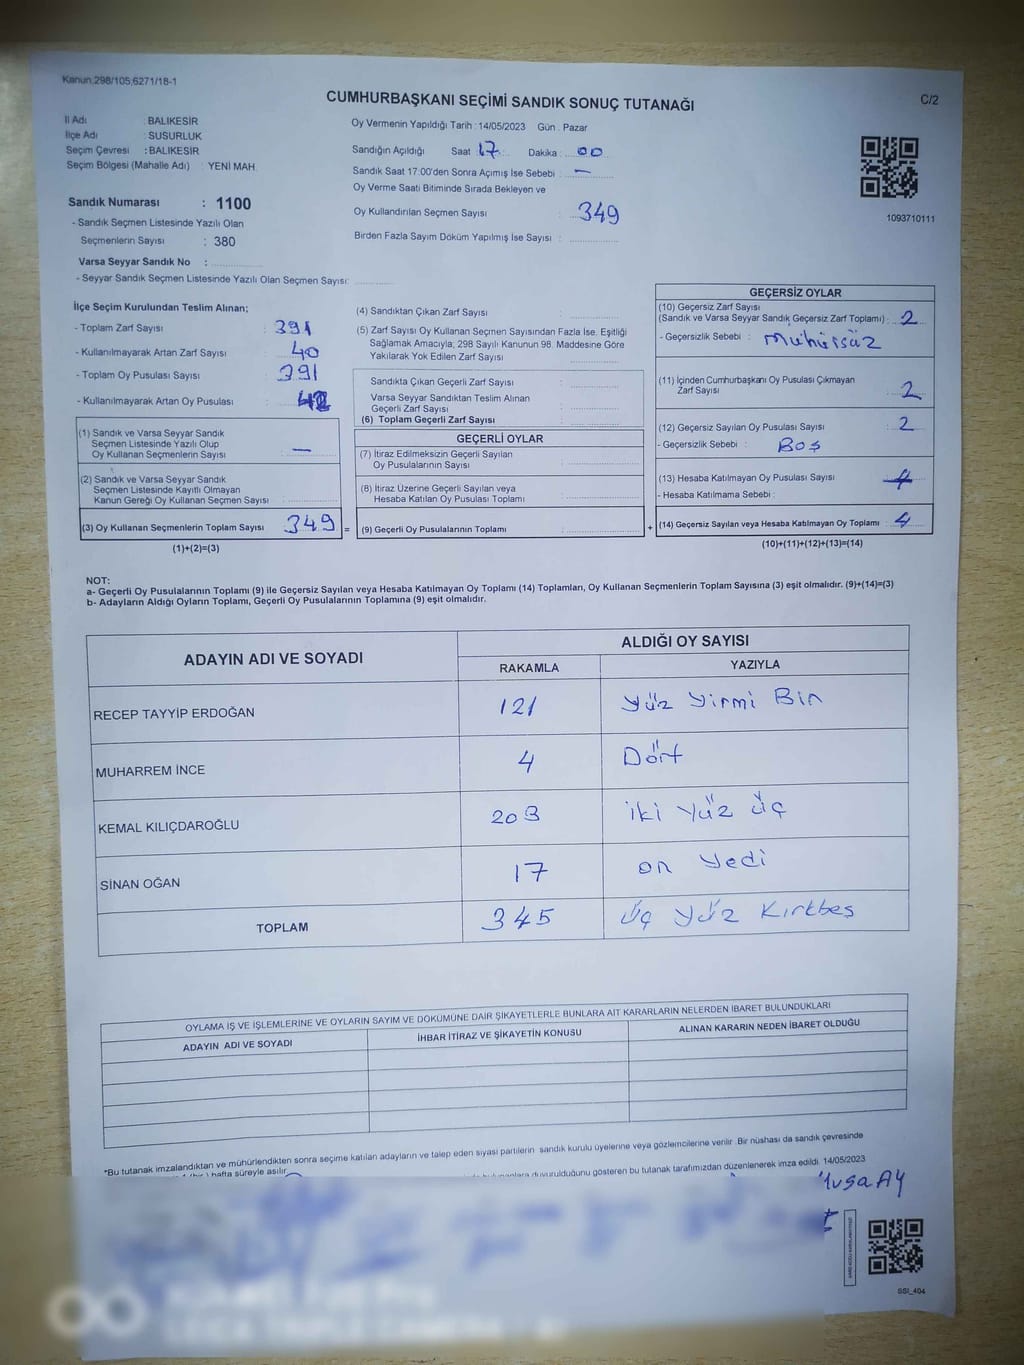 Kanun:298/105,6271/18-1
CUMHURBAŞKANI SEÇİMİ SANDIK SONUÇ TUTANAĞI
C/2
İl Adı : BALIKESİR
İlçe Adı : SUSURLUK
Seçim Çevresi : BALIKESİR
Seçim Bölgesi (Mahalle Adı) : YENİ MAH.
Sandık Numarası : 1100
- Sandık Seçmen Listesinde Yazılı Olan
Seçmenlerin Sayısı : 380
Varsa Seyyar Sandık No :
- Seyyar Sandık Seçmen Listesinde Yazılı Olan Seçmen Sayısı:
Oy Vermenin Yapıldığı Tarih : 14/05/2023 Gün : Pazar
Sandığın Açıldığı Saat : 17 Dakika : 00
Sandık Saat 17:00'den Sonra Açımış İse Sebebi : —
Oy Verme Saati Bitiminde Sırada Bekleyen ve
Oy Kullandırılan Seçmen Sayısı : 349
Birden Fazla Sayım Döküm Yapılmış İse Sayısı :
1093710111
İlçe Seçim Kurulundan Teslim Alınan;
- Toplam Zarf Sayısı : 391
- Kullanılmayarak Artan Zarf Sayısı : 40
- Toplam Oy Pusulası Sayısı : 391
- Kullanılmayarak Artan Oy Pusulası :
(1) Sandık ve Varsa Seyyar Sandık
Seçmen Listesinde Yazılı Olup
Oy Kullanan Seçmenlerin Sayısı : —
(2) Sandık ve Varsa Seyyar Sandık
Seçmen Listesinde Kayıtlı Olmayan
Kanun Gereği Oy Kullanan Seçmen Sayısı :
(3) Oy Kullanan Seçmenlerin Toplam Sayısı : 349 =
(1)+(2)=(3)
(4) Sandıktan Çıkan Zarf Sayısı :
(5) Zarf Sayısı Oy Kullanan Seçmen Sayısından Fazla İse, Eşitliği
Sağlamak Amacıyla, 298 Sayılı Kanunun 98. Maddesine Göre
Yakılarak Yok Edilen Zarf Sayısı :
Sandıkta Çıkan Geçerli Zarf Sayısı :
Varsa Seyyar Sandıktan Teslim Alınan
Geçerli Zarf Sayısı :
(6) Toplam Geçerli Zarf Sayısı :
GEÇERLİ OYLAR
(7) İtiraz Edilmeksizin Geçerli Sayılan
Oy Pusulalarının Sayısı :
(8) İtiraz Üzerine Geçerli Sayılan veya
Hesaba Katılan Oy Pusulası Toplamı :
(9) Geçerli Oy Pusulalarının Toplamı : +
GEÇERSİZ OYLAR
(10) Geçersiz Zarf Sayısı
(Sandık ve Varsa Seyyar Sandık Geçersiz Zarf Toplamı) : 2
- Geçersizlik Sebebi : Mühürsüz
(11) İçinden Cumhurbaşkanı Oy Pusulası Çıkmayan
Zarf Sayısı : 2
(12) Geçersiz Sayılan Oy Pusulası Sayısı : 2
- Geçersizlik Sebebi : Boş
(13) Hesaba Katılmayan Oy Pusulası Sayısı : 4
- Hesaba Katılmama Sebebi :
(14) Geçersiz Sayılan veya Hesaba Katılmayan Oy Toplamı : 4
(10)+(11)+(12)+(13)=(14)
NOT:
a- Geçerli Oy Pusulalarının Toplamı (9) ile Geçersiz Sayılan veya Hesaba Katılmayan Oy Toplamı (14) Toplamları, Oy Kullanan Seçmenlerin Toplam Sayısına (3) eşit olmalıdır. (9)+(14)=(3)
b- Adayların Aldığı Oyların Toplamı, Geçerli Oy Pusulalarının Toplamına (9) eşit olmalıdır.
ADAYIN ADI VE SOYADI
ALDIĞI OY SAYISI
RAKAMLA YAZIYLA
RECEP TAYYİP ERDOĞAN 121 Yüz Yirmi Bir
MUHARREM İNCE 4 Dört
KEMAL KILIÇDAROĞLU 203 iki yüz üç
SİNAN OĞAN 17 on yedi
TOPLAM 345 Üç yüz Kırkbeş
OYLAMA İŞ VE İŞLEMLERİNE VE OYLARIN SAYIM VE DÖKÜMÜNE DAİR ŞİKAYETLERLE BUNLARA AİT KARARLARIN NELERDEN İBARET BULUNDUKLARI
ADAYIN ADI VE SOYADI İHBAR İTİRAZ VE ŞİKAYETİN KONUSU ALINAN KARARIN NEDEN İBARET OLDUĞU
*Bu tutanak imzalandıktan ve mühürlendikten sonra seçime katılan adayların ve talep eden siyasi partilerin sandık kurulu üyelerine veya gözlemcilerine verilir. Bir nüshası da sandık çevresinde
hafta süreyle asılır. duyurulduğunu gösteren bu tutanak tarafımızdan düzenlenerek imza edildi. 14/05/2023
Musa AY
SSİ_404